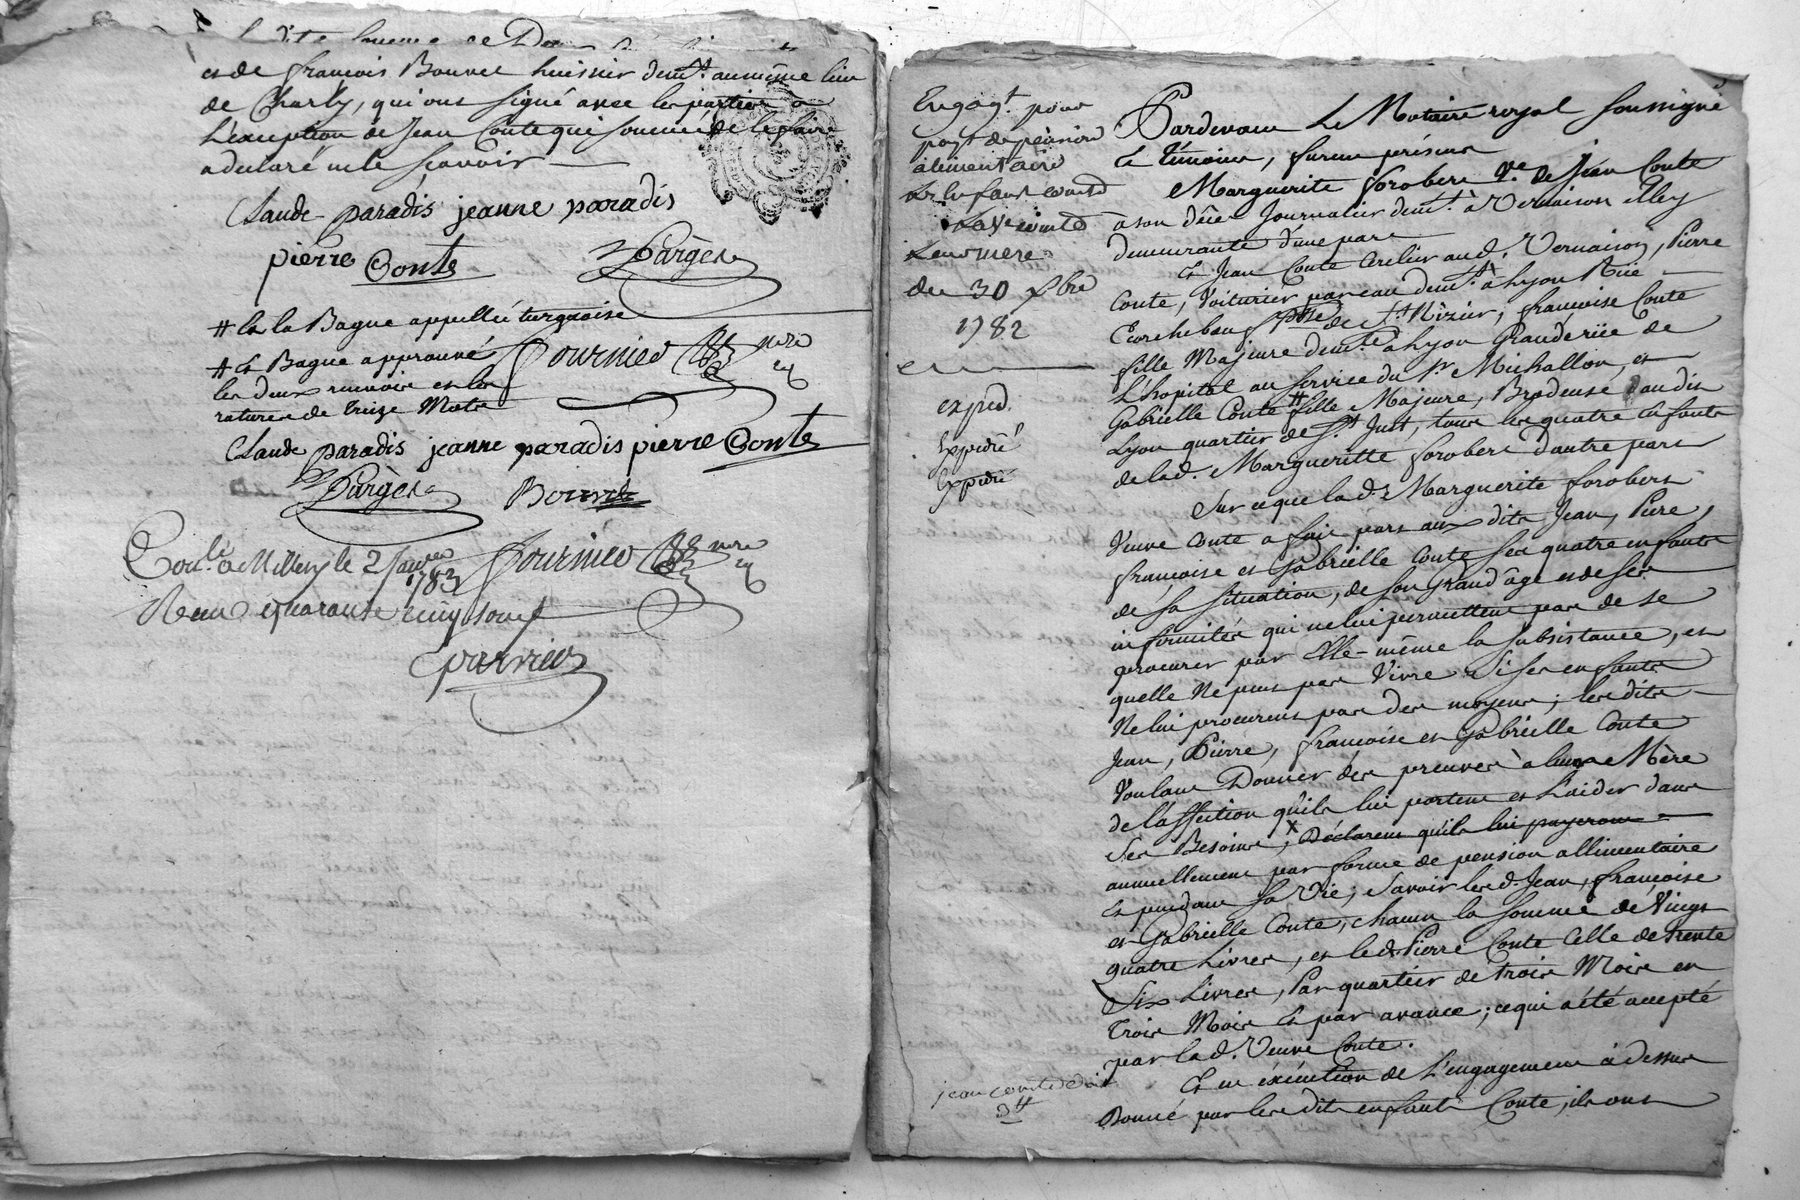 et de françois Bonnet huissier demt. au même lieu
de Charly, qui ont signé avec les parties a
L'exception de Jean Conte qui sommé de le faire
a déclaré ne le scavoir
Claude paradis jeanne paradis
pierre Conte Dargère
# Et la Bague appellée turquoise
# et Bague approuvé
les deux renvois et les
ratures de treize Mots
fournier nre
Claude paradis jeanne paradis pierre Conte
Dargère Bonnet
Conlé. a Millery le 2 janvier
1783
fournier nre
Recu quarante cinq sous
Engagt. pour
payt. de pension
alimentaire
Les Enfans conte
a la Ve conte
Leur mere
du 30 xbre
1782
exped.
Expedié
Expedié
Pardevant Le Notaire royal soussigné
Et témoins, furent présens
Marguerite forobert Ve. de Jean Conte
à son décès Journalier demt. à Vernaison elle y
demeurante d'une part
Et Jean Conte Cerclier aud. Vernaison, Pierre
Conte, Voiturier par eau demt. à Lyon Rüe
Ecorcheboeuf psse de St Nizier, françoise Conte
fille Majeure demte à Lyon Grande rüe de
L'hopital au service du Sr Michallon, et
Gabrielle Conte # fille Majeure, Brodeuse audit
Lyon quartier de St Just, tous les quatre enfants
de lad. Margueritte forobert d'autre part
Sur ce que lad. Marguerite forobert
Veuve Conte a fait part aux dits Jean, Pierre,
françoise et Gabrielle Conte ses quatre enfants
de sa situation, de son grand âge et de ses
infirmités qui ne lui permettent pas de se
procurer par Elle-même la subsistance, et
quelle Ne peut pas Vivre Si ses enfants
Ne lui procurent pas des moyens; lesdits
Jean, Pierre, françoise et Gabrielle Conte
Voulant Donner des preuves à leur Mère
de l'affection qu'ils lui portent et L'aider dans
Ses Besoins, x Déclarent qu'ils lui payeront
annuellement par forme de pension allimentaire
Et pendant sa Vie; Savoir lesd. Jean, françoise
et Gabrielle Conte, chacun la somme de Vingt
quatre Livres, et led. Pierre Conte Celle de trente
Six Livres, Par quartier de trois Mois en
trois Mois et par avance; ce qui a été accepté
par lad. Veuve Conte.
Et en éxécution de L'engagement à dessus
Donné par lesdits enfants Conte, ils ont
jean conte doit
3tt